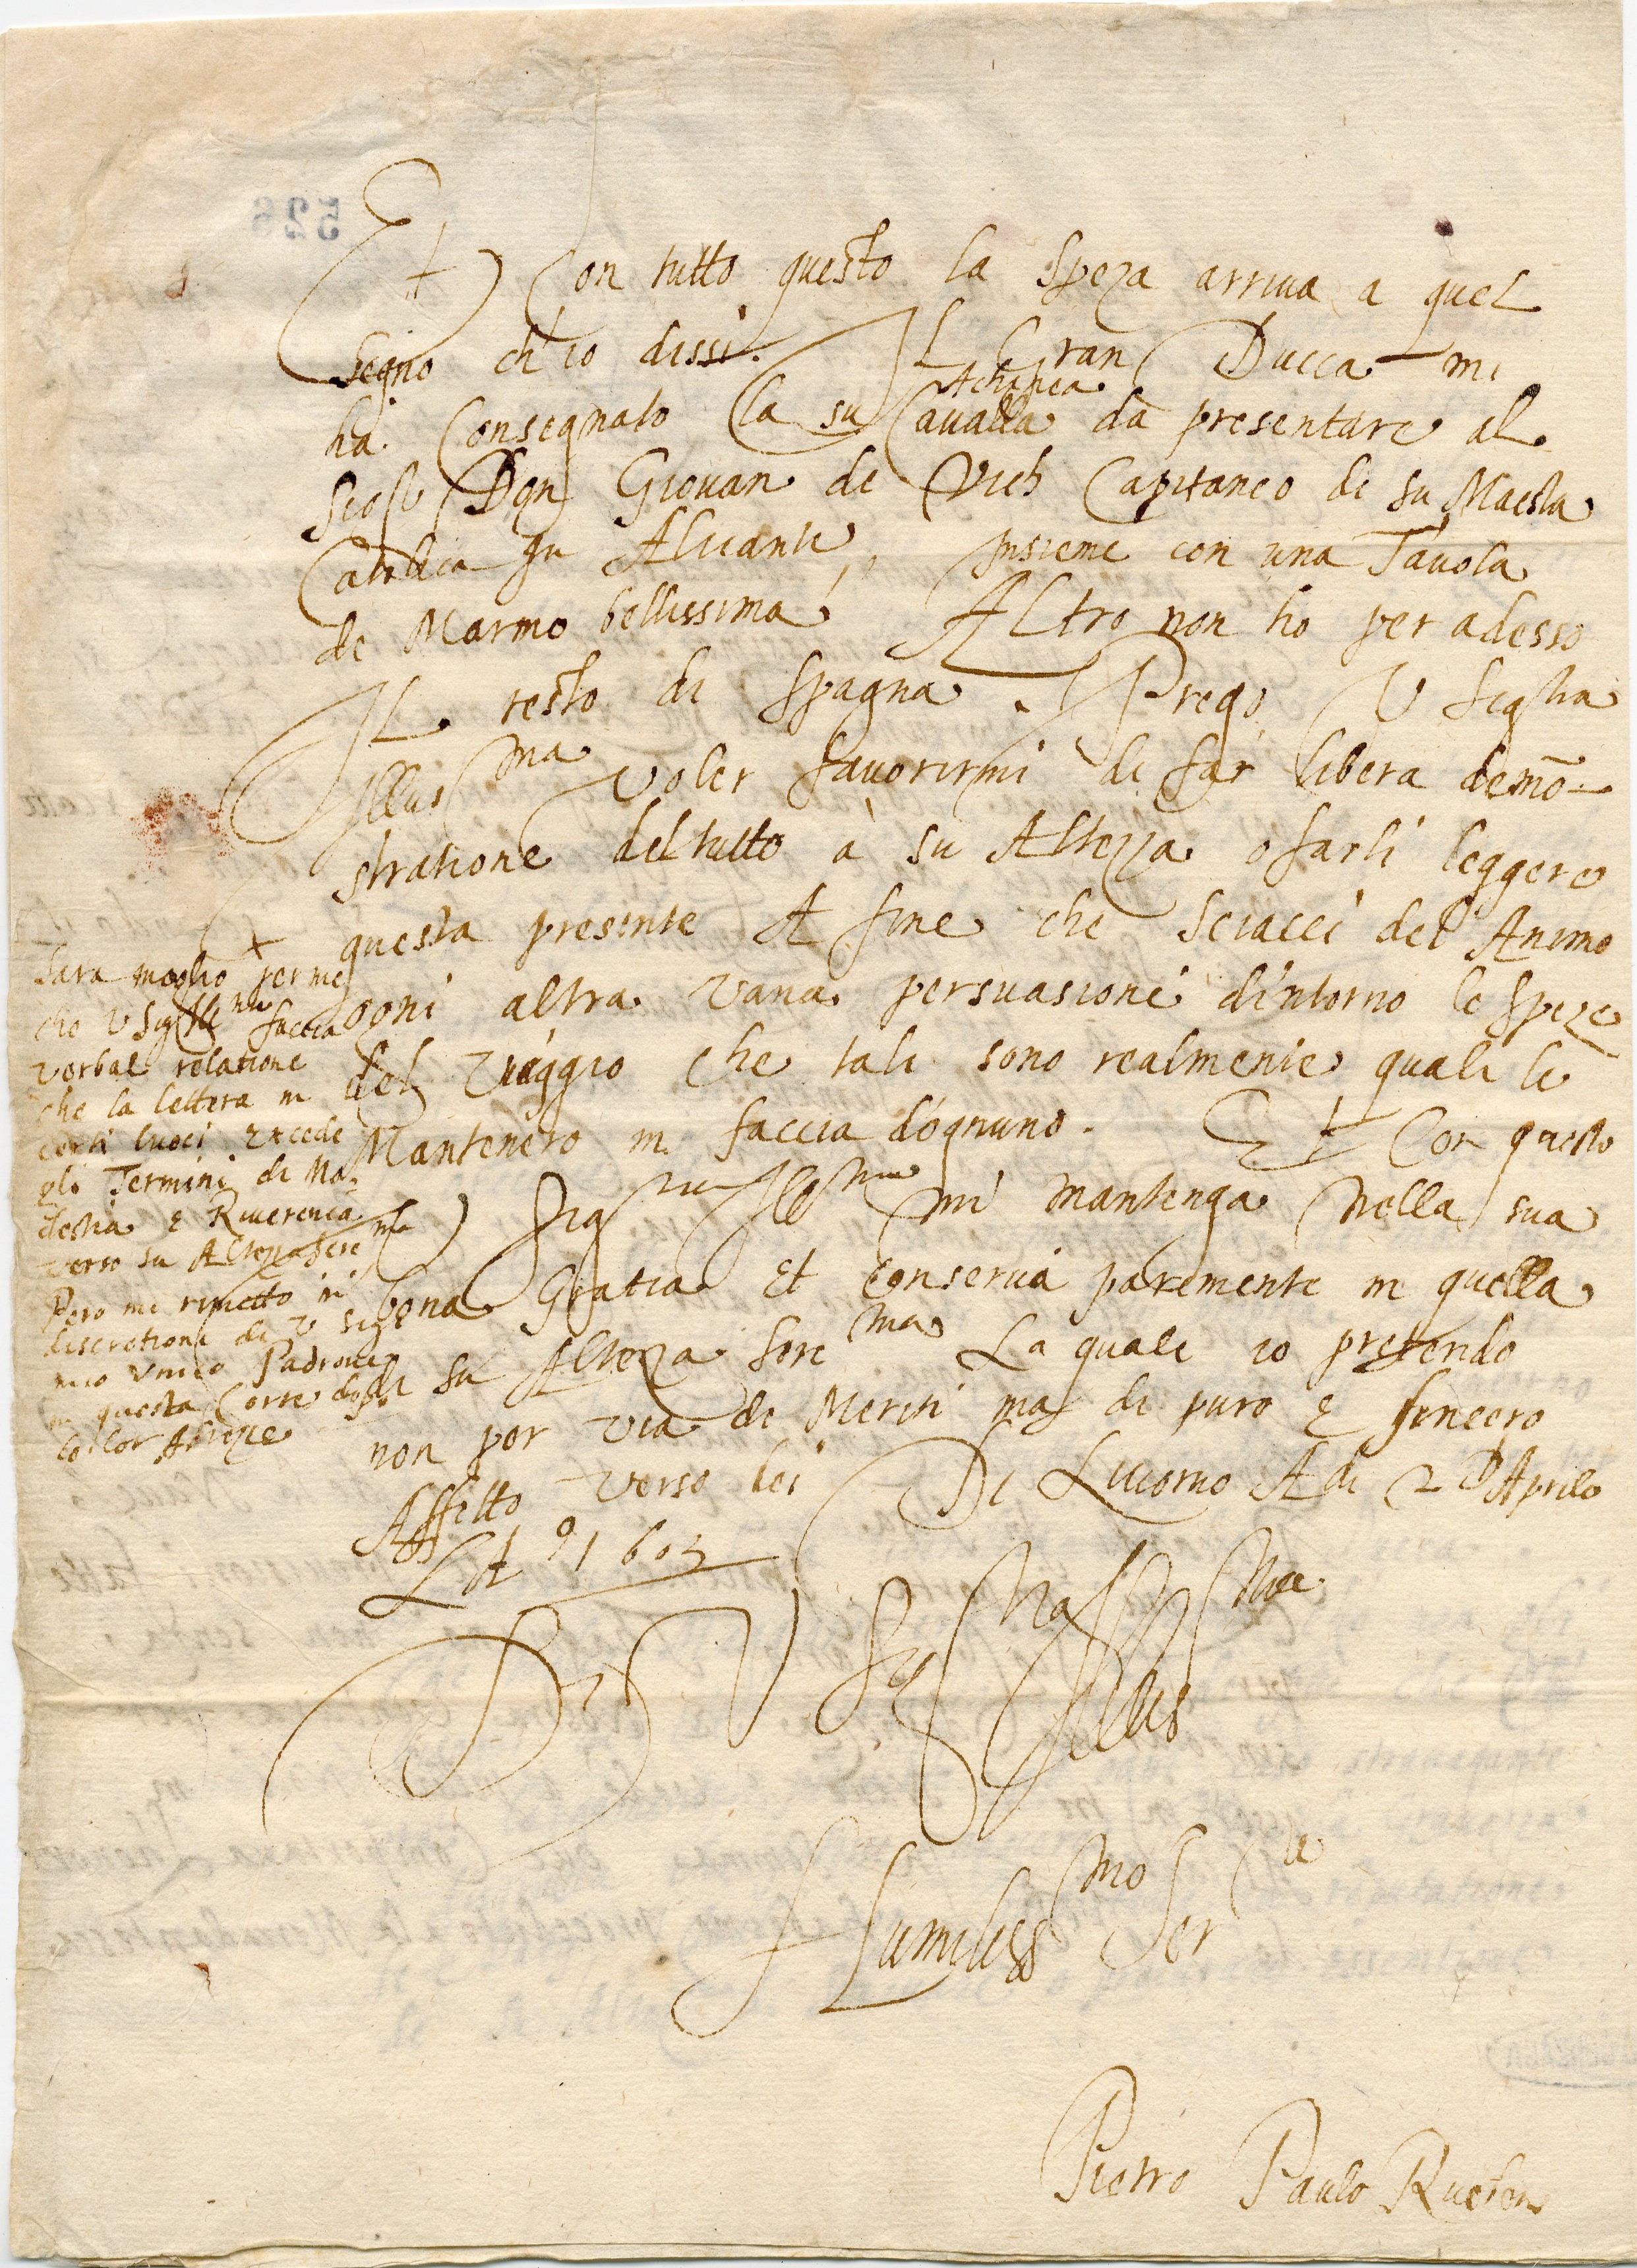 Et Con tutto questo la speza arriva a quel
segno ch'io dissi. Il Gran Ducca mi
Achinea
ha consegnato la su Cavalla da presentare al
Don Giovan de Vich Capitaneo de su Maesta
Catolica in Alicante, insieme con una Tavola
de Marmo bellissima. Altro non ho per adesso
Il resto di Spagna. Prego V Sigria
Illusma voler favorirmi di far libera demō-
stratione del tutto à su Altezza o farli leggere
questa presente A fine che sciacci del Animo
ogni altra vana persuasione d'intorno le speze
del viaggio che tali sono realmente quali le
Mantenero in faccia d'ognuno. Et Con questo
V Sigria Illma mi mantenga nella sua
bona Gratia et conserva paremente in quella
di su Altezza Serma La quale io pretendo
non per via de Meriti ma di puro e sincero
Affetto verso lei Di Livorno A di 2 d'Aprile
Lāo 1603
De V Sigria Illusma
Humilissmo Serre
Pietro Paulo Rueben
+
Sara meglio per me
che V Sig Illma faccia
verbal relatione
che la lettera in
certi luoci excede
gli Termini di Mo-
destia e Riverenza
verso su Altezza Serema
Pero mi rimetto in
discretione di V Sig
mio Unico Padrone
in questa Corte
Altezze
526